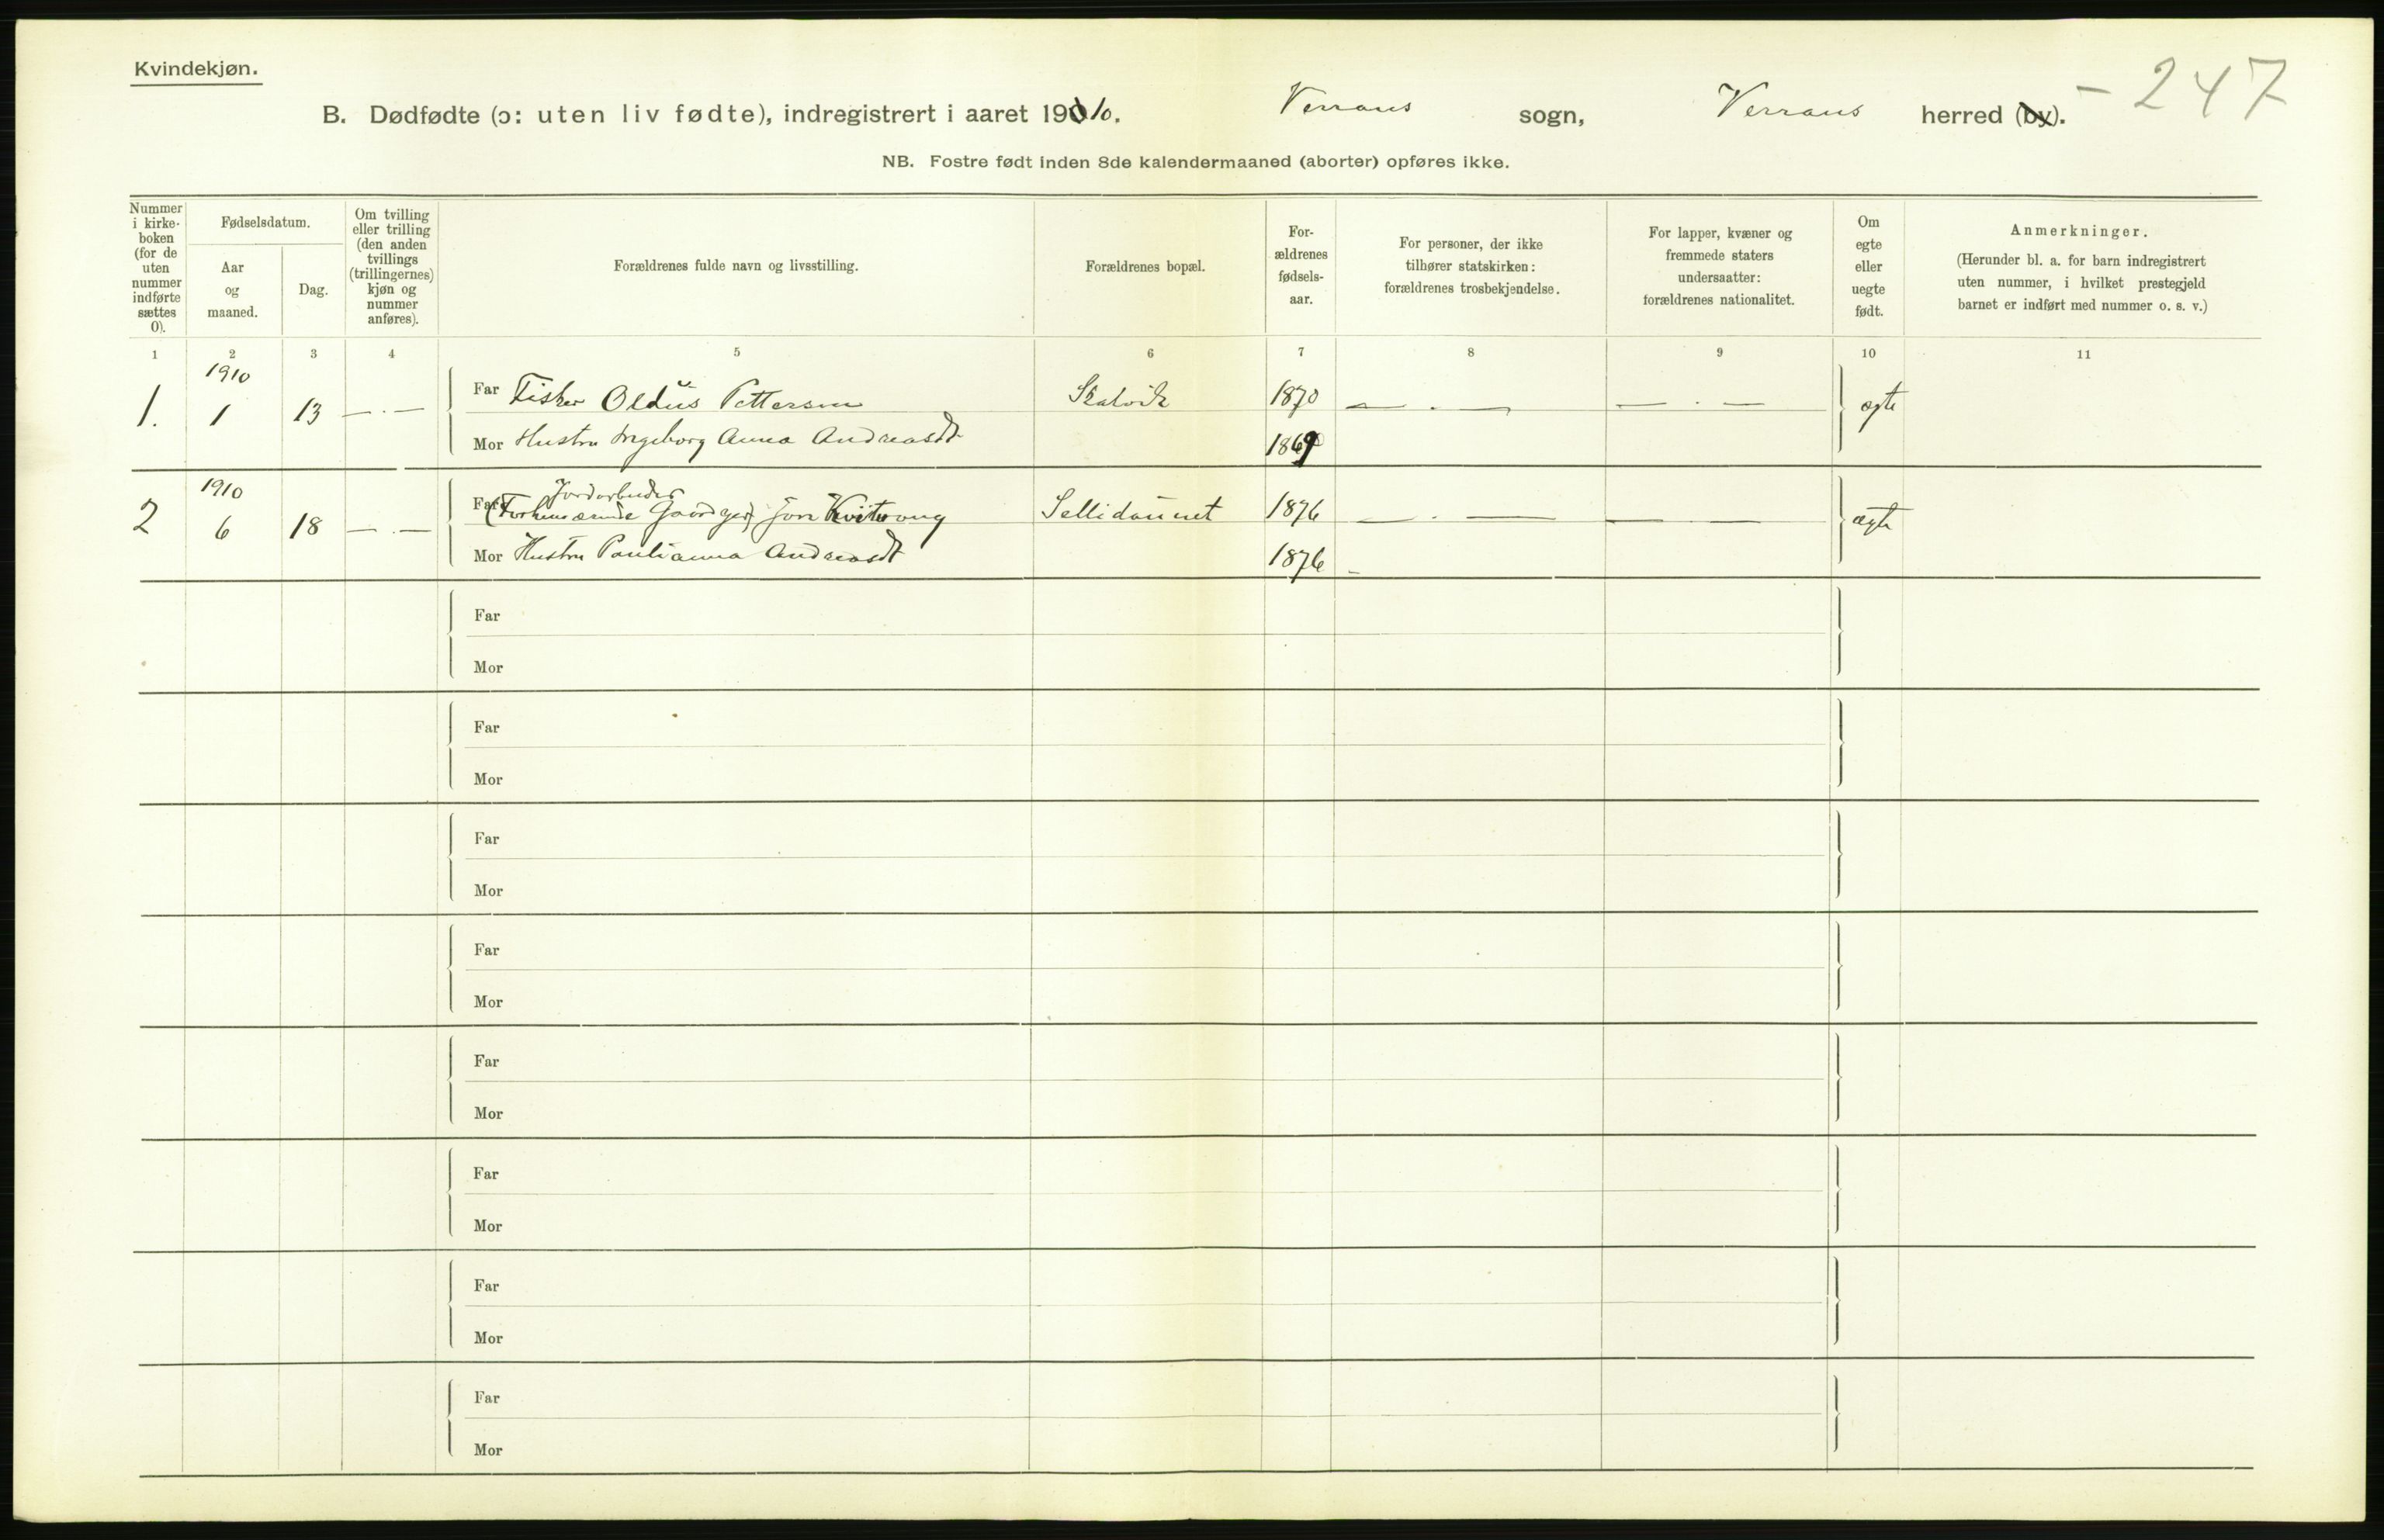 Kvindekjøn.
- 247
B. Dødfødte (ɔ: uten liv fødte), indregistrert i aaret 1910. Verrans sogn, Verrans herred (by).
NB. Fostre født inden 8de kalendermaaned (aborter) opføres ikke.
Nummer i kirke-boken (for de uten nummer indførte sættes 0).
Fødselsdatum.
Aar og maaned.
Dag.
Om tvilling eller trilling (den anden tvillings (trillingernes) kjøn og nummer anføres).
Forældrenes fulde navn og livsstilling.
Forældrenes bopæl.
For-ældrenes fødsels-aar.
For personer, der ikke tilhører statskirken: forældrenes trosbekjendelse.
For lapper, kvæner og fremmede staters undersaatter: forældrenes nationalitet.
Om egte eller uegte født.
Anmerkninger.
(Herunder bl. a. for barn indregistrert uten nummer, i hvilket prestegjeld barnet er indført med nummer o. s. v.)
1 2 3 4 5 6 7 8 9 10 11
1910
1. 1 13 — · — Far Fisker Oldus Pettersen Skalvik 1870 — · — — · — ægte
Mor Hustru Ingeborg Anna Andreasdt 1869
1910 Jordarbeider
2 6 18 — · — Far (Forhenværende Gaardbr) Kvitvang 1876 — · — — · — ægte
Mor Hustru Paulianna Andreasdt 1876 -
Far
Mor
Far
Mor
Far
Mor
Far
Mor
Far
Mor
Far
Mor
Far
Mor
Far
Mor